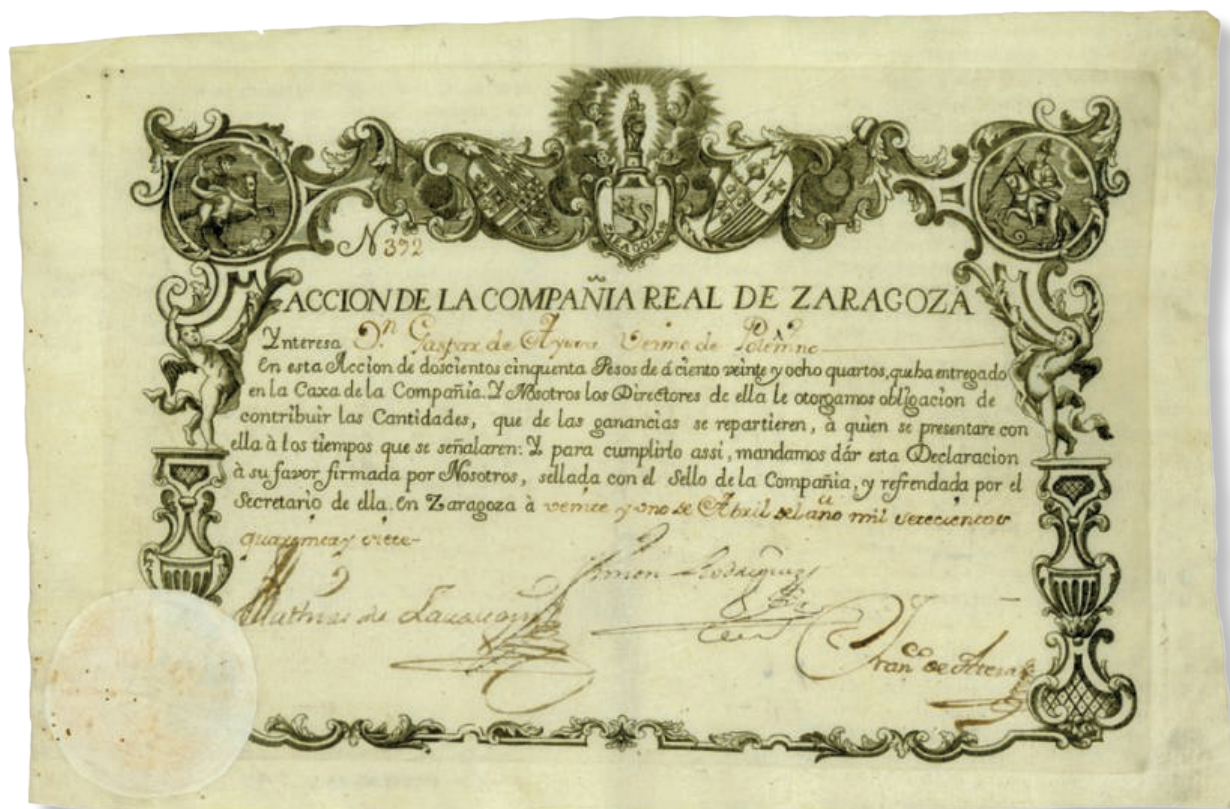 ZARAGOZA
N 392
ACCION DE LA COMPAÑIA REAL DE ZARAGOZA
Ynteresa Dn. Gaspar de
En esta Accion de doscientos cinquenta Pesos de á ciento veinte y ocho quartos, que ha entregado
en la Caxa de la Compañia. Y Nosotros los Directores de ella le otorgamos obligacion de
contribuir las Cantidades, que de las ganancias se repartieren, à quien se presentare con
ella à los tiempos que se señalaren: Y para cumplirlo assi, mandamos dár esta Declaracion
à su favor firmada por Nosotros, sellada con el Sello de la Compañia, y refrendada por el
Secretario de ella. En Zaragoza à veinte y uno de Abril del año mil setecientos
quarenta y siete
Simon Rodriguez
Mathias de
Franco de